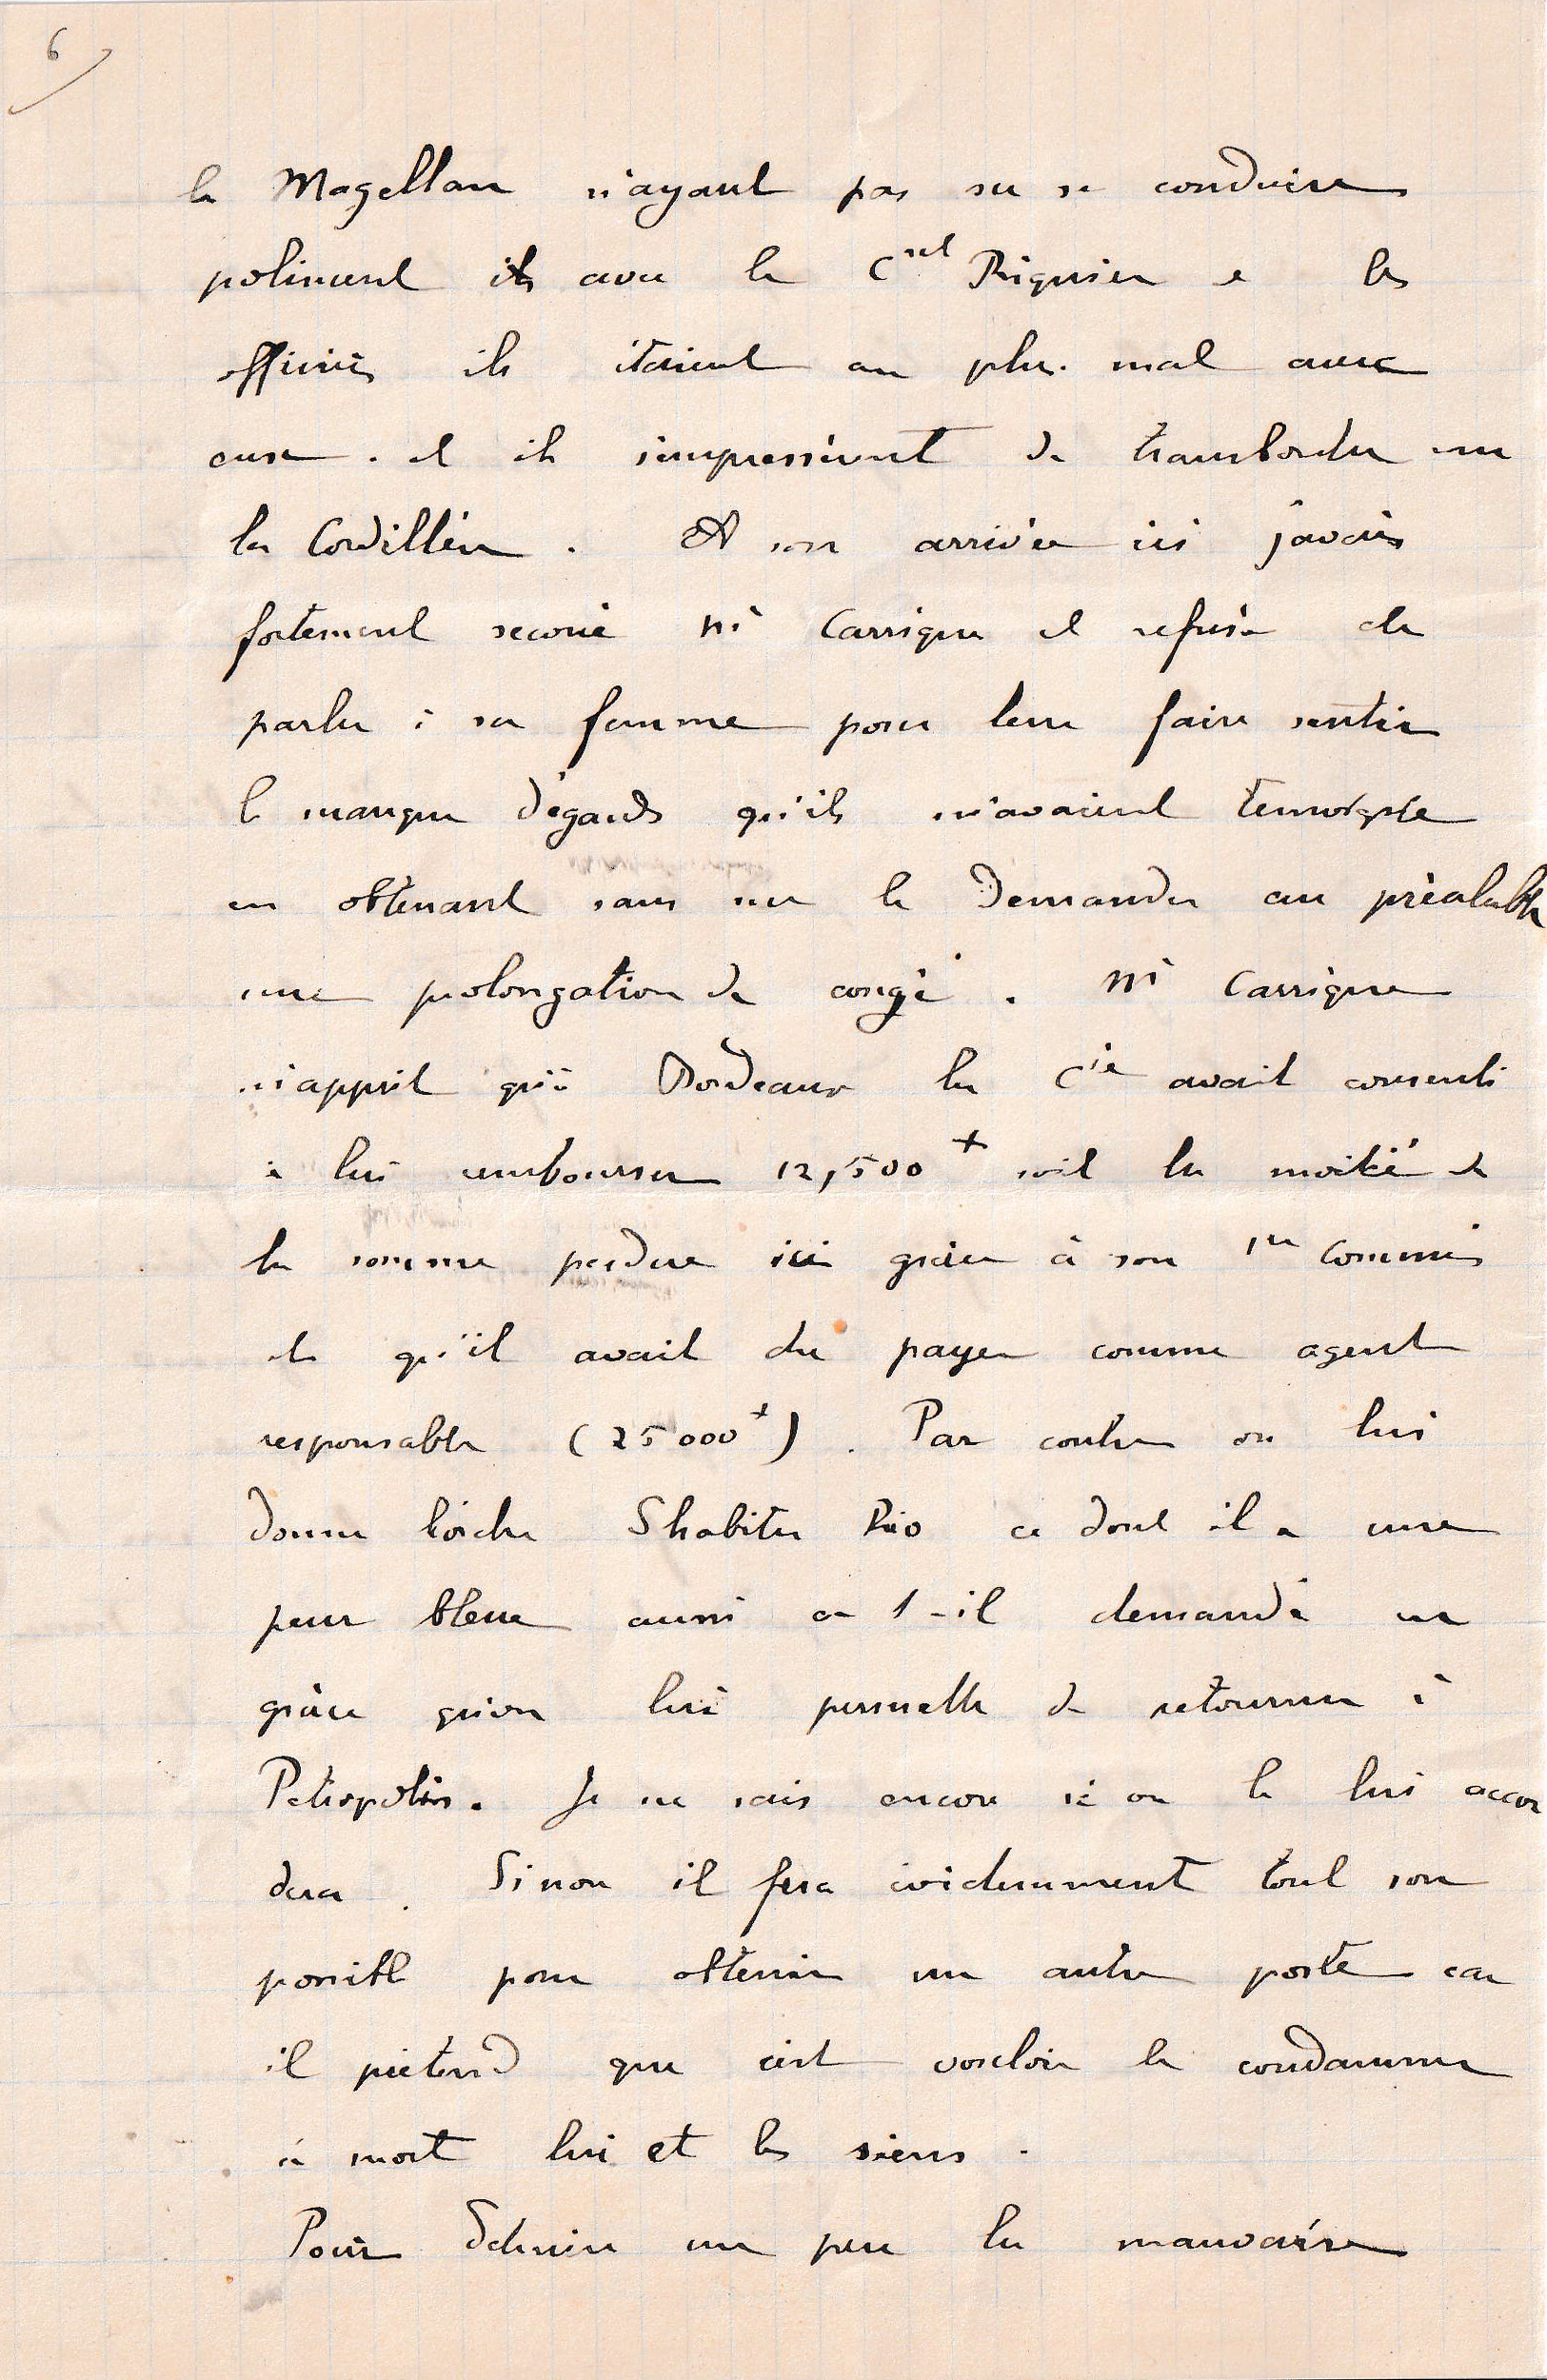 6
le Magellan n'ayant pas su se conduire
poliment ils avec le Cnel Riquier et les
officiers ils étaient au plus mal avec
eux . et ils s'empressèrent de transborder sur
la Cordillère . A son arrivée ici j'avais
fortement secoué Mr Carrique et refusé de
parler à sa femme pour leur faire sentir
le manque d'égards qu'ils m'avaient temoigné
en obtenant sans me le demander au préalable
une prolongation de congé . Mr Carrique
m'apprit qu'à Bordeaux la Cie avait consenti
à lui rembourser 12,500 soit la moitié de
la somme perdue ici grâce à son 1er Commis
et qu'il avait du payer comme agent
responsable (25000) . Par contre on lui
donne l'ordre d'habiter Rio ce dont il a une
peur bleue aussi a t-il demandé en
grâce qu'on lui permette de retourner à
Petropolis. Je ne sais encore si on le lui accor
dera . Sinon il fera évidemment tout son
possible pour obtenir un autre poste car
il prétend que c'est vouloir le condamner
à mort lui et les siens .
Pour détruire un peu la mauvaise